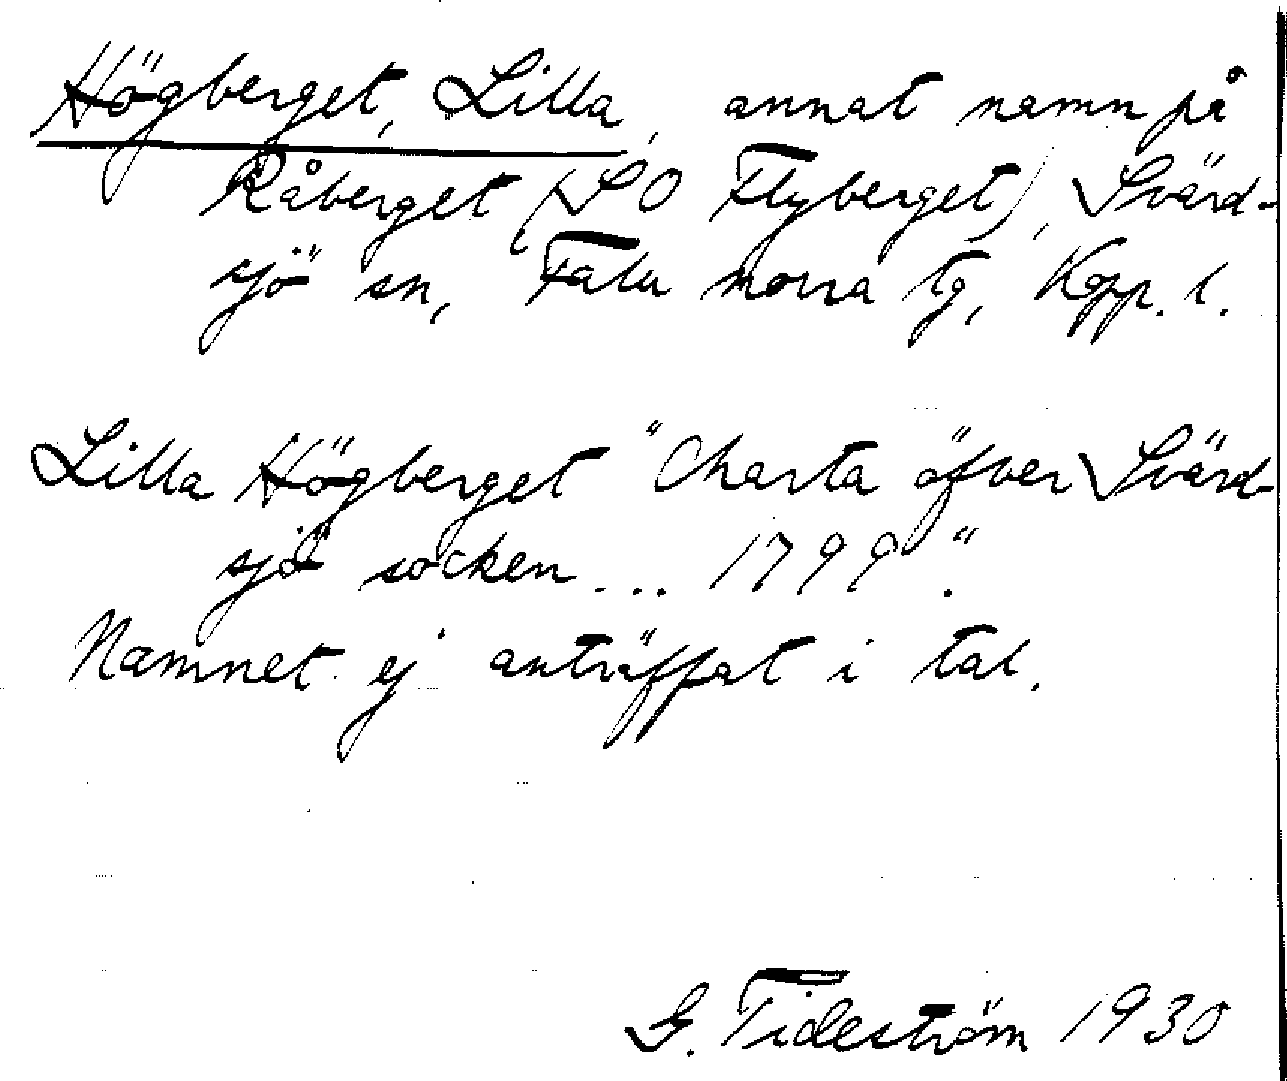 Högberget, Lilla, annat namn på
Råberget (SO Flyberget), Svärd-
sjö sn, Falu norra tg, Kopp. l.
Lilla Högberget "Charta öfver Svärd-
sjö socken... 1799".
Namnet ej anträffat i tal.
G. Tideström 1930